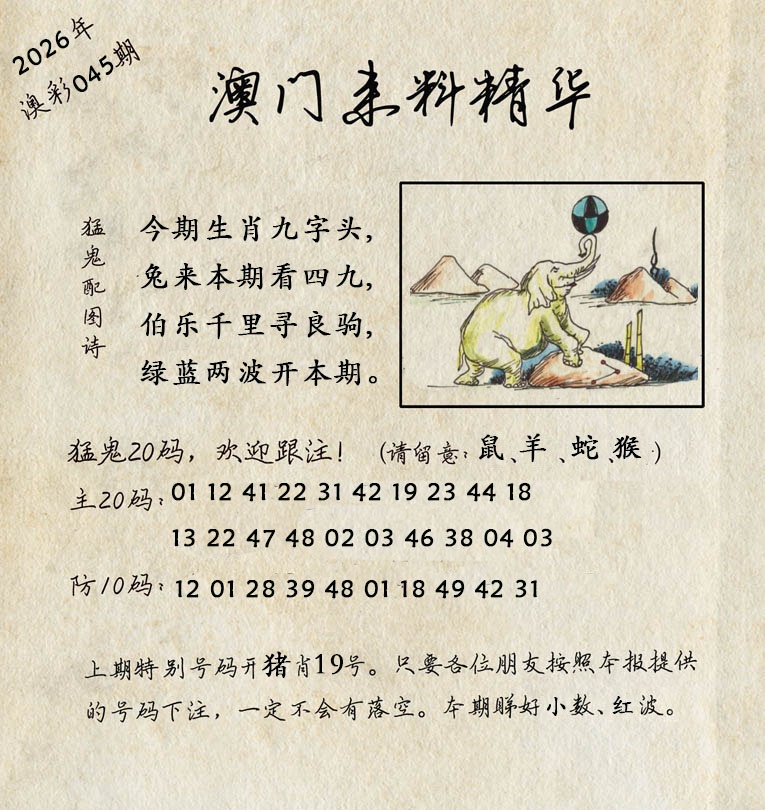 2026年
澳彩045期
澳门来料精华
猛鬼配图诗
今期生肖九字头，
兔来本期看四九，
伯乐千里寻良驹，
绿蓝两波开本期。
猛鬼20码，欢迎跟注！（请留意：鼠、羊、蛇、猴）
主20码：01 12 41 22 31 42 19 23 44 18
13 22 47 48 02 03 46 38 04 03
防10码：12 01 28 39 48 01 18 49 42 31
上期特别号码开猪肖19号。只要各位朋友按照本报提供
的号码下注，一定不会有落空。本期睇好小数、红波。